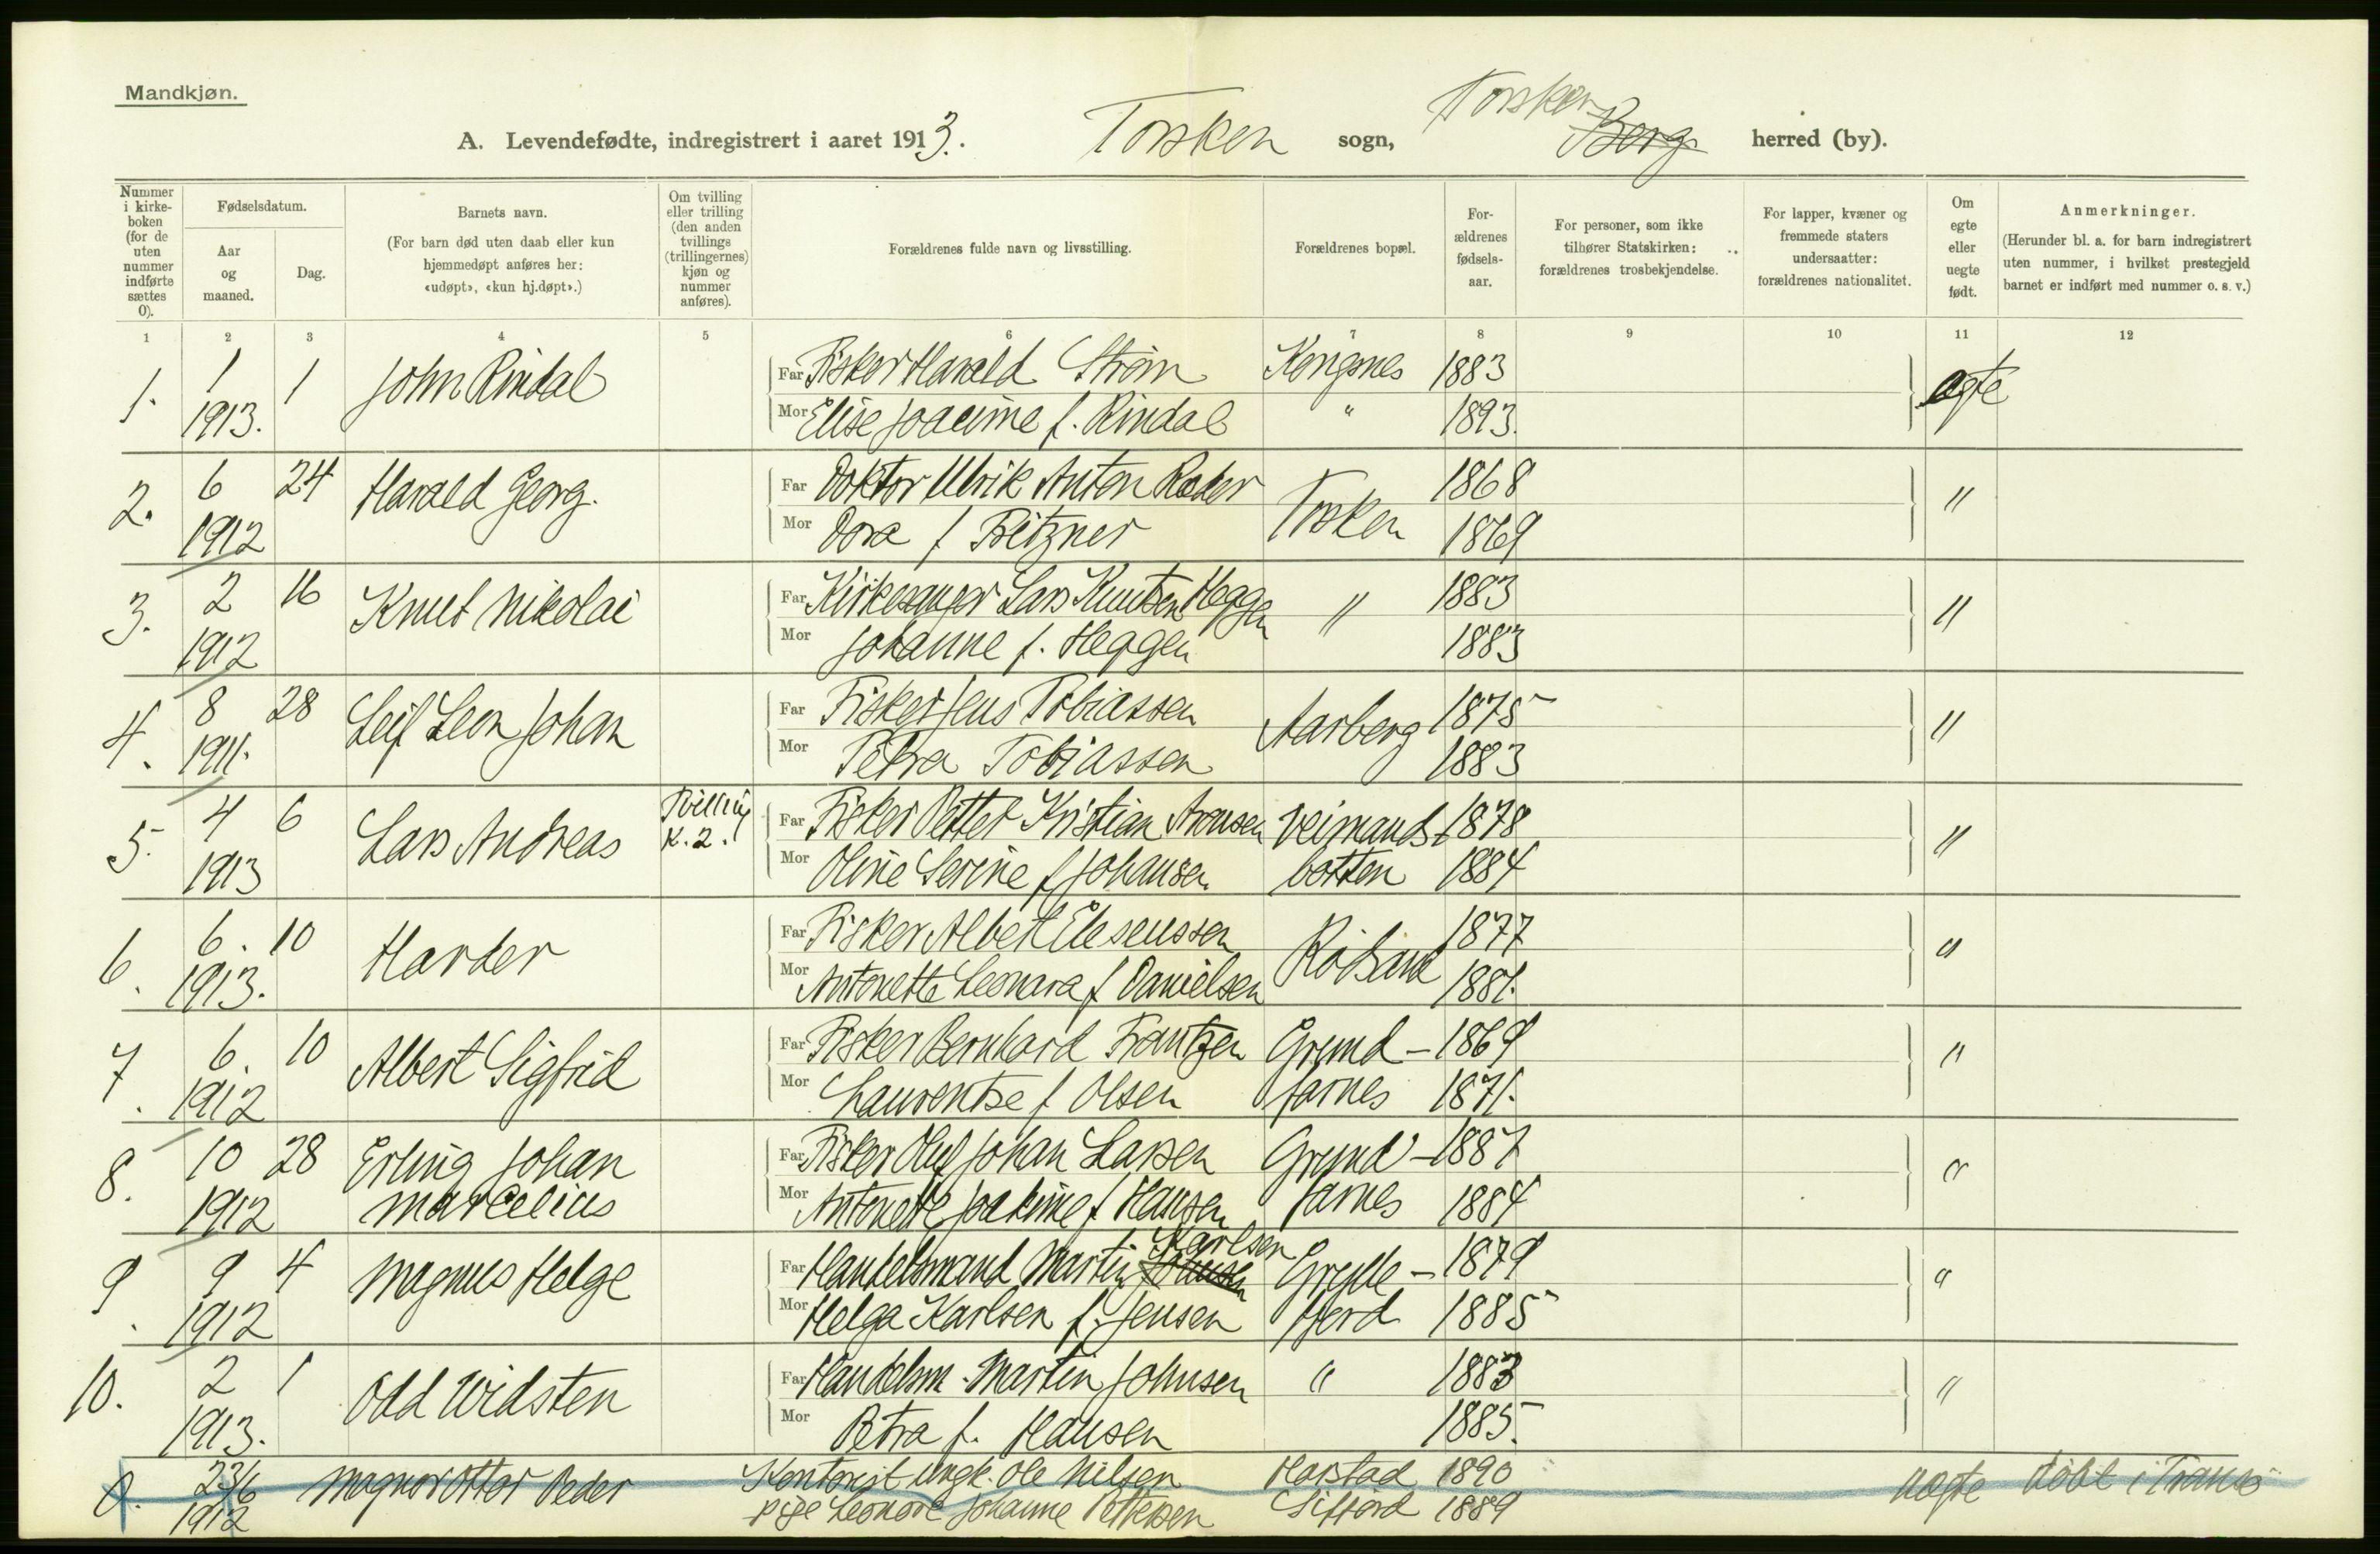 Mandkjøn.
A. Levendefødte, indregistrert i aaret 1913. Torsken sogn, Torsken Berg herred (by).
Nummer i kirke-boken (for de uten nummer indførte sættes 0).
Fødselsdatum.
Aar og maaned.
Dag.
Barnets navn.
(For barn død uten daab eller kun hjemmedøpt anføres her: «udøpt», «kun hj.døpt».)
Om tvilling eller trilling (den anden tvillings (trillingernes) kjøn og nummer anføres).
Forældrenes fulde navn og livsstilling.
Forældrenes bopæl.
For-ældrenes fødsels-aar.
For personer, som ikke tilhører Statskirken: forældrenes trosbekjendelse.
For lapper, kvæner og fremmede staters undersaatter: forældrenes nationalitet.
Om egte eller uegte født.
Anmerkninger.
(Herunder bl. a. for barn indregistrert uten nummer, i hvilket prestegjeld barnet er indført med nummer o. s. v.)
1 2 3 4 5 6 7 8 9 10 11 12
1. 1 1 John Rindal Far Fisker Harald Strøm Kongsnes 1883 ægte
1913. Mor Elise Joacime f. Rindal " 1893.
2. 6 24 Harald Georg. Far Doktor Ulrik Anton Ræder Torsken 1868 "
1912 Mor Dora f Fritzner 1869
3. 2 16 Knut Nikolai Far Kirkesanger Lars Knutsen Heggen " 1883 "
1912 Mor Johanne f. Heggen 1883
4. 8 28 Leif Leon Johan Far Fisker Jens Tobiassen Aarberg 1875 "
1911. Mor Petra Tobiassen 1883
5. 4 6 Lars Andreas Tvilling K. 2. Far Fisker Petter Kristian Aronsen Veimands- 1878 "
1913 Mor Oline Serine f Johansen botten 1884
6. 6. 10 Harder Far Fisker Albert Elesenssen 1877 "
1913. Mor Antonette Leonara f Danielsen 1881.
7. 6. 10 Albert Sigfrid Far Fisker Bernhard Frantzen Grund- 1869 "
1912 Mor Laurentse f Olsen farnes 1871.
8. 10 28 Erling Johan Far Fisker Oluf Johan Larsen Grund- 1887 "
1912 Marcelius Mor Antonette Joakime f Hansen farnes 1884
Karlsen
9. 9 4 Magnus Helge Far Handelsmand Martin Johnsen Grylle- 1879 "
1912 Mor Helga Karlsen f. Jensen fjord 1885
10. 2 1 Odd Widsten Far Handelsm. Martin Johnsen " 1883 "
1913. Mor Petra f. Hansen 1885.
0. 23/6 Magnor Ottar Peder Kontorist ungk. Ole Nilsen Harstad 1890 uægte døbt i Tranø
1912 pige Leonore Johanne Pettersen Sifjord 1889